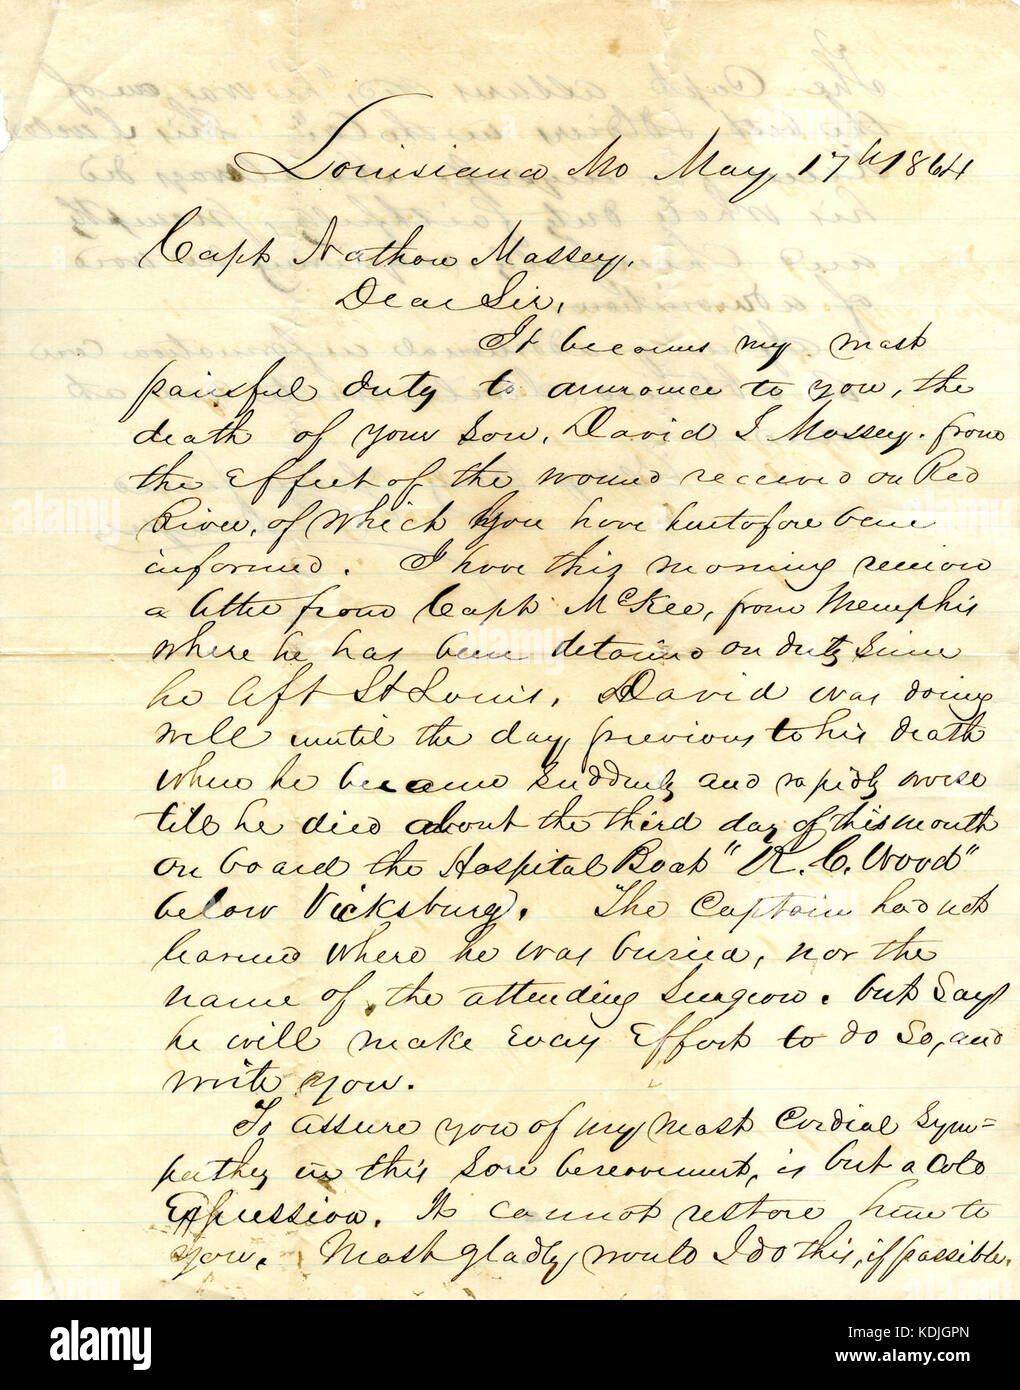 Louisiana Mo May 17th 1864
Capt Nathan Massey,
Dear Sir,
It becomes my most
painful duty to announce to you, the
death of your Son, David I Massey. from
the Effect of the wound received on Red
River, of which you have heretofore been
informed. I have this morning received
a letter from Capt McKee, from Memphis
where he has been detained on duty Since
he left St Louis. David was doing
well until the day previous to his death
when he became Suddenly and rapidly worse
till he died about the third day of this month
on board the Hospital Boat "R. C. Wood"
below Vicksburg. The Captain had not
learned where he was buried, nor the
name of the attending Surgeon. but Says
he will make Every Effort to do So, and
write you.
To assure you of my most Cordial Sym=
pathy in this Sore bereavement, is but a cold
Expression. It cannot restore him to
you. Most gladly would I do this, if possible.
alamy
Image ID: KDJGPN
www.alamy.com